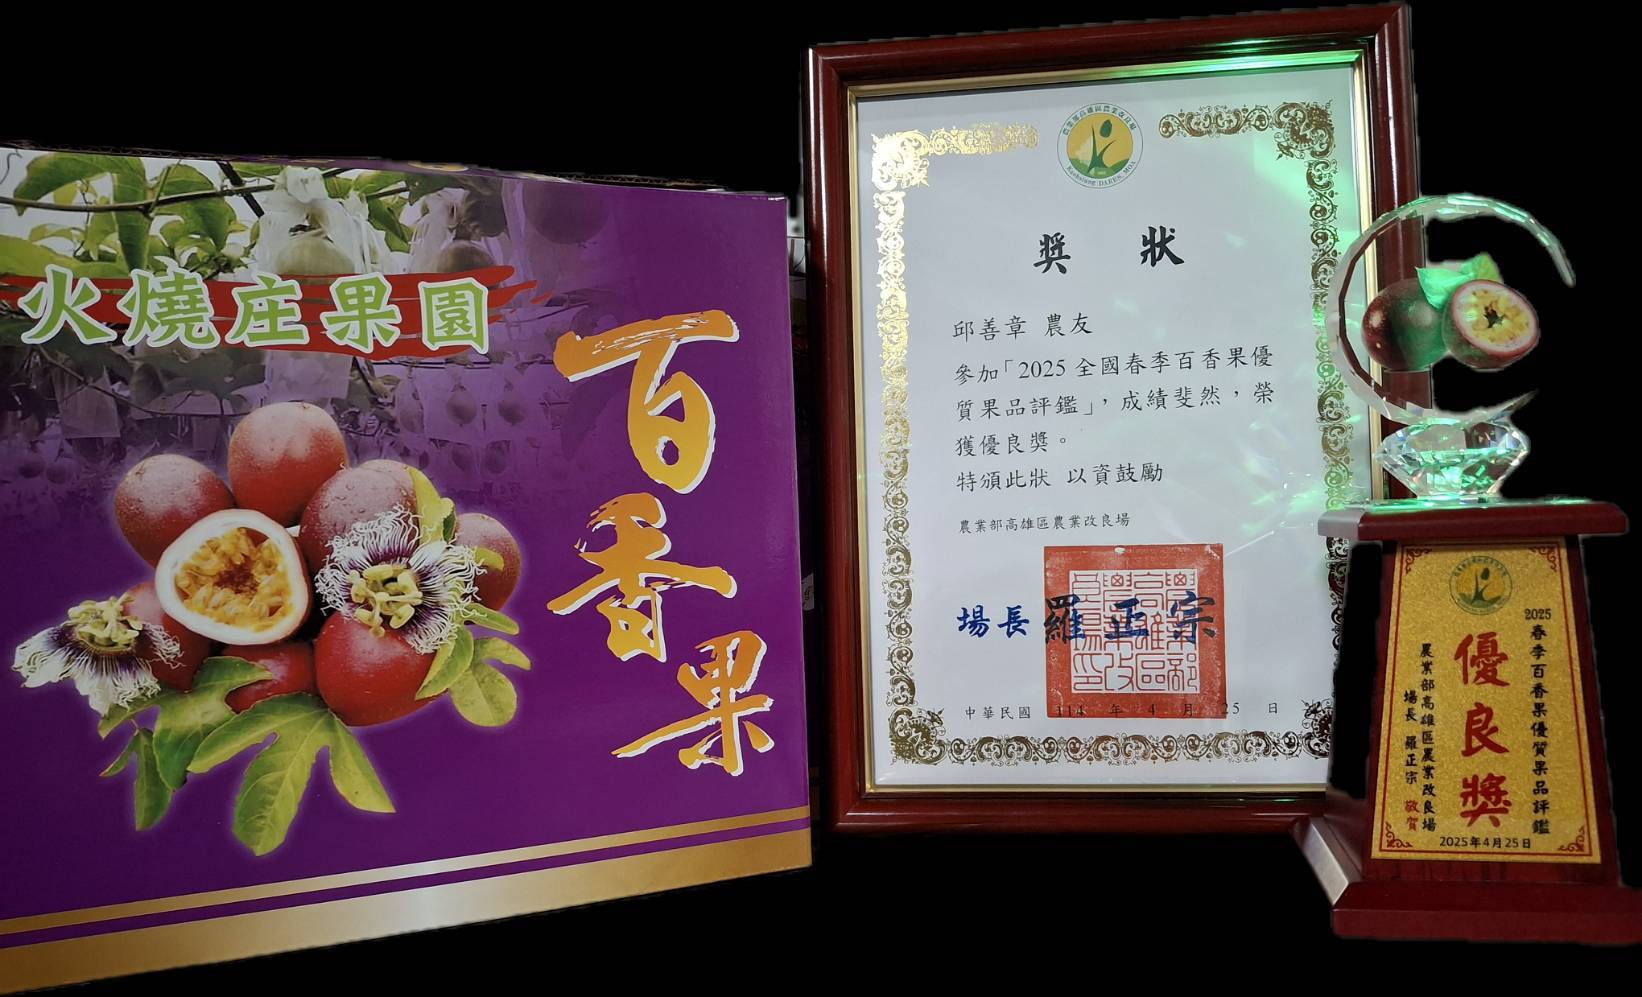 火燒庄果園
百香果
農業部高雄區農業改良場
Kaohsiung DARES, MOA
獎狀
邱善章 農友
參加「2025 全國春季百香果優
質果品評鑑」，成績斐然，榮
獲優良獎。
特頒此狀 以資鼓勵
農業部高雄區農業改良場
場長 羅正宗
中華民國 114 年 4 月 25 日
2025春季百香果優質果品評鑑
優良獎
農業部高雄區農業改良場
場長 羅正宗 敬賀
2025年4月25日